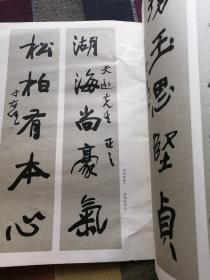 湖海尚豪氣
天逊先生正之
松柏有本心
于右任
玉思堅貞